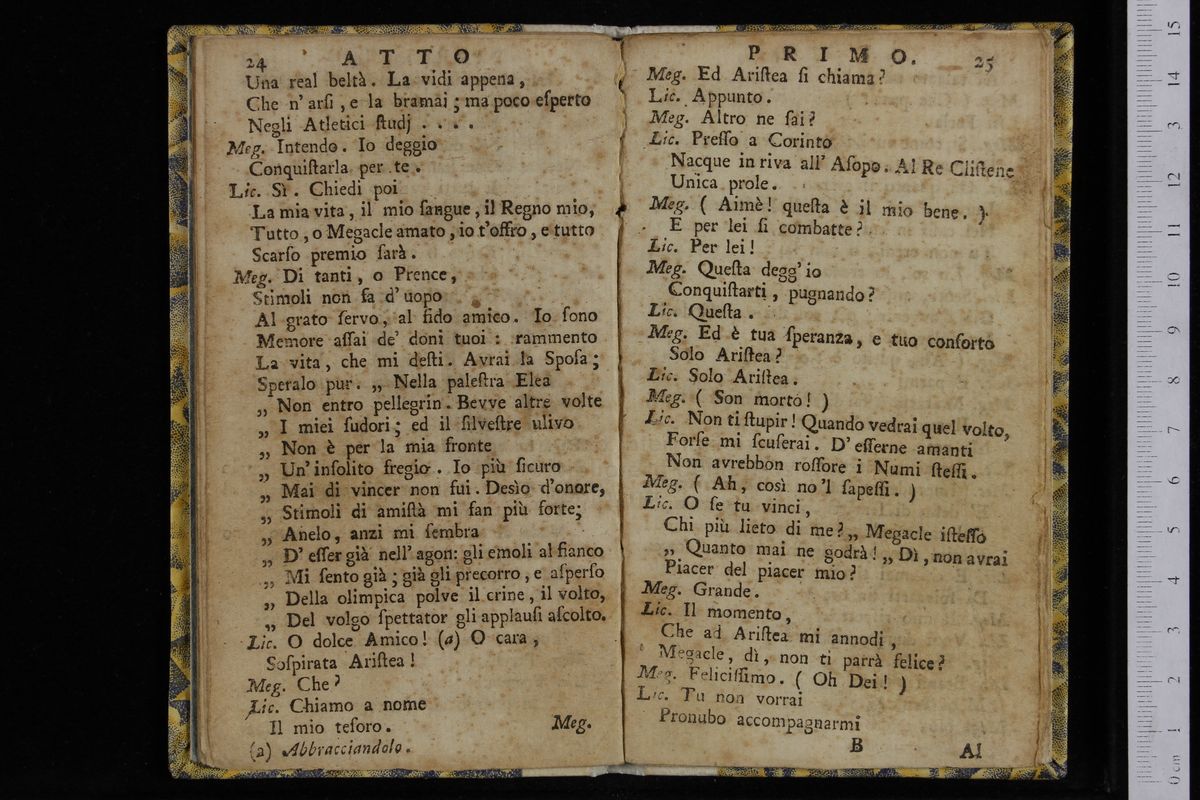 24 ATTO
Una real beltà. La vidi appena,
Che n' arſi, e la bramai; ma poco eſperto
Negli Atletici ſtudj . . . .
Meg. Intendo. Io deggio
Conquiſtarla per te.
Lic. Sì. Chiedi poi
La mia vita, il mio ſangue, il Regno mio,
Tutto, o Megacle amato, io t'offro, e tutto
Scarſo premio ſarà.
Meg. Di tanti, o Prence,
Stimoli non fa d'uopo
Al grato ſervo, al fido amico. Io ſono
Memore aſſai de' doni tuoi: rammento
La vita, che mi deſti. Avrai la Spoſa;
Speralo pur. „ Nella paleſtra Elea
„ Non entro pellegrin. Bevve altre volte
„ I miei ſudori; ed il ſilveſtre ulivo
„ Non è per la mia fronte
„ Un' inſolito fregio. Io più ſicuro
„ Mai di vincer non fui. Desìo d'onore,
„ Stimoli di amiſtà mi fan più forte;
„ Anelo, anzi mi ſembra
„ D' eſſer già nell' agon: gli emoli al fianco
„ Mi ſento già; già gli precorro, e aſperſo
„ Della olimpica polve il crine, il volto,
„ Del volgo ſpettator gli applauſi aſcolto.
Lic. O dolce Amico! (a) O cara,
Soſpirata Ariſtea!
Meg. Che?
Lic. Chiamo a nome
Il mio teſoro. Meg.
(a) Abbracciandolo.
PRIMO. 25
Meg. Ed Ariſtea ſi chiama?
Lic. Appunto.
Meg. Altro ne ſai?
Lic. Preſſo a Corinto
Nacque in riva all' Aſopo. Al Re Cliſtene
Unica prole.
Meg. ( Aimè! queſta è il mio bene. )
E per lei ſi combatte?
Lic. Per lei!
Meg. Queſta degg' io
Conquiſtarti, pugnando?
Lic. Queſta.
Meg. Ed è tua ſperanza, e tuo conforto
Solo Ariſtea?
Lic. Solo Ariſtea.
Meg. ( Son morto! )
Lic. Non ti ſtupir! Quando vedrai quel volto,
Forſe mi ſcuſerai. D' eſſerne amanti
Non avrebbon roſſore i Numi ſteſſi.
Meg. ( Ah, così no'l ſapeſſi. )
Lic. O ſe tu vinci,
Chi più lieto di me? „ Megacle iſteſſo
„ Quanto mai ne godrà! „ Dì, non avrai
Piacer del piacer mio?
Meg. Grande.
Lic. Il momento,
Che ad Ariſtea mi annodi,
Megacle, dì, non ti parrà felice?
Meg. Feliciſſimo. ( Oh Dei! )
Lic. Tu non vorrai
Pronubo accompagnarmi
B Al
0 cm 1 2 3 4 5 6 7 8 9 10 11 12 13 14 15